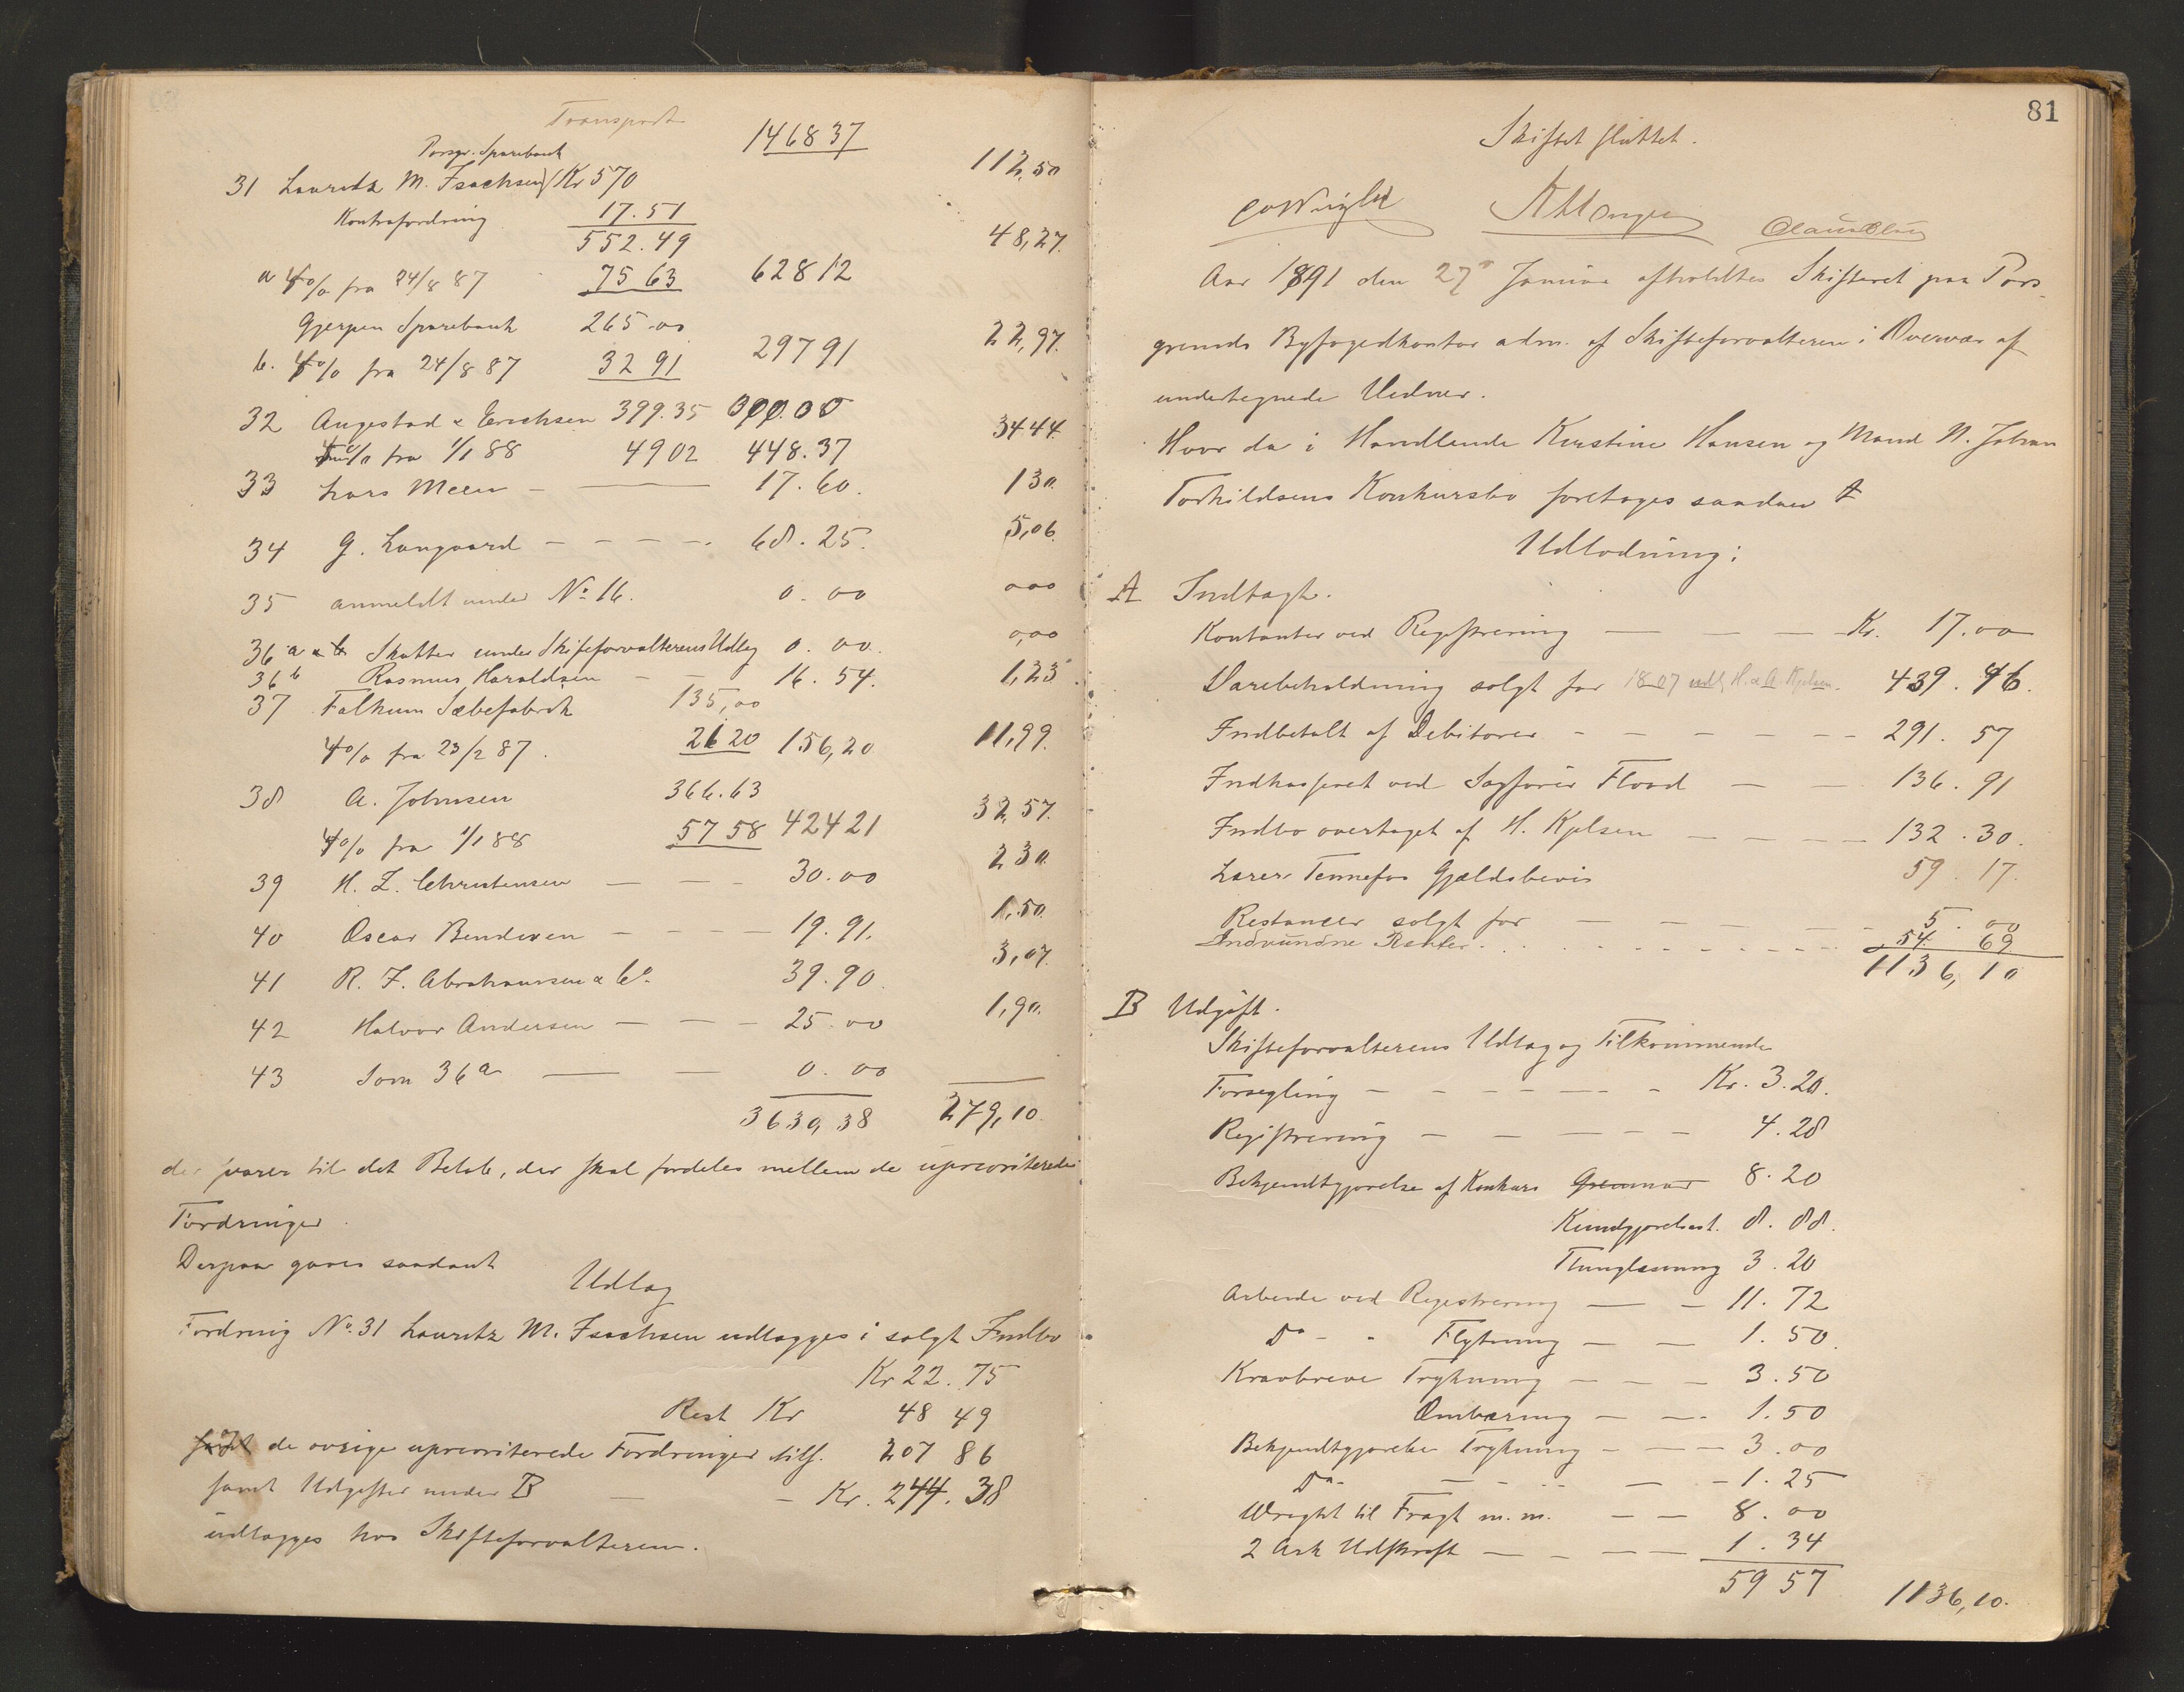 Transport 1468 37 112,50
Porsgr. Sparebank
31 Lauritz M. Isachsen / Kr 570
Kontrafordring 17.51
552.49 48,27.
a 4% fra 24/8 87 75 63 628 12
Gjerpen Sparebank 265.00 22,97.
b. 4% fra 24/8 87 32 91 297 91
32 Augestad & Erichsen 399.35 000.00
4% fra 1/1 88 49 02 448.37 34 44
33 Lars Meen — 17.60. 1 30.
34 G. Langaard - - - - 68.25. 5,06.
35 anmeldt under No 16. 0.00 000
36 a & b Skatter under Skifteforvalterens Udlæg 0.00. 0,00
36 b Rasmus Haraldsen — 16.54. 1,25.
37 Falkum Sæbefabrik 135,00
4% fra 23/2 87. 26 20 156,20 11,99.
38 A. Johnsen 366.63
4% fra 1/1 88 57 58 424 21 32,57.
39 H. Z. Christensen — — - 30.00 2 30.
40 Oscar Bendixen - - - - 19.91. 1,50
41 R. F. Abrahamsen & Co 39.90. 3,07
42 Halvor Andersen — — — 25.00 1,90.
43 Som 36a — — 0.00
3630,38 279,10.
der svarer til det Beløb, der skal fordeles mellem de uprioriterede
Fordringer.
Derpaa gøres saadant
Udlæg
Fordring No. 31 Lauritz M. Isachsen udlægges i solgt Indbo
Kr 22.75
Rest Kr 48 49
de øvrige uprioriterede Fordringer tils. 207 86
samt Udgifter under B — - Kr. 244.38
udlægges hos Skifteforvalteren.
81
Skiftet sluttet.
Aar 1891 den 27de Januar afholdtes Skifteret paa Pors-
grunds Byfogedkontor adm. af Skifteforvalteren i Overvær af
undertegnede Vidner.
Hvor da i Handlende Kirstine Hansen og Mand N. Johan
Torkildsens Konkursbo foretoges saadan
Udlodning:
A Indtægt.
Kontanter ved Registrering — — — — Kr. 17.00
Varebeholdning solgt for 18.07 udl. H. & A. Kjølsen. 439.46.
Indbetalt af Debitorer - - - - - - 291.57
Indkasseret ved Sagfører Flood — — 136.91
Indbo overtaget af H. Kjølsen — - - - 132.30.
Lærer Tennefos Gjældsbevis 59.17.
Restancer solgt for — — — 5.00
Indvundne Renter. . . . - - - - - - 54 69
1136,10
B Udgift.
Skifteforvalterens Udlæg og Tilkommende
Forsegling — - - - - — - Kr. 3.20.
Registrering — — — — — - 4.28
Bekjendtgjørelse af Konkurs Grenmar 8.20
Kundgjørelsest. 8.88.
Thinglæsning 3.20
Arbeide ved Registrering — - 11.72
Do - - Flytning — — 1.50.
Kravbreve Trykning — - - 3.50
Ombæring — —. 1.50
Bekjendtgjørelse Trykning - - - - 3.00
Do - — - - - — - 1.25
Wright til Fragt m.m. — — 8.00
2 Ark Udskrift — - - — — 1.34
59 57 1136,10.